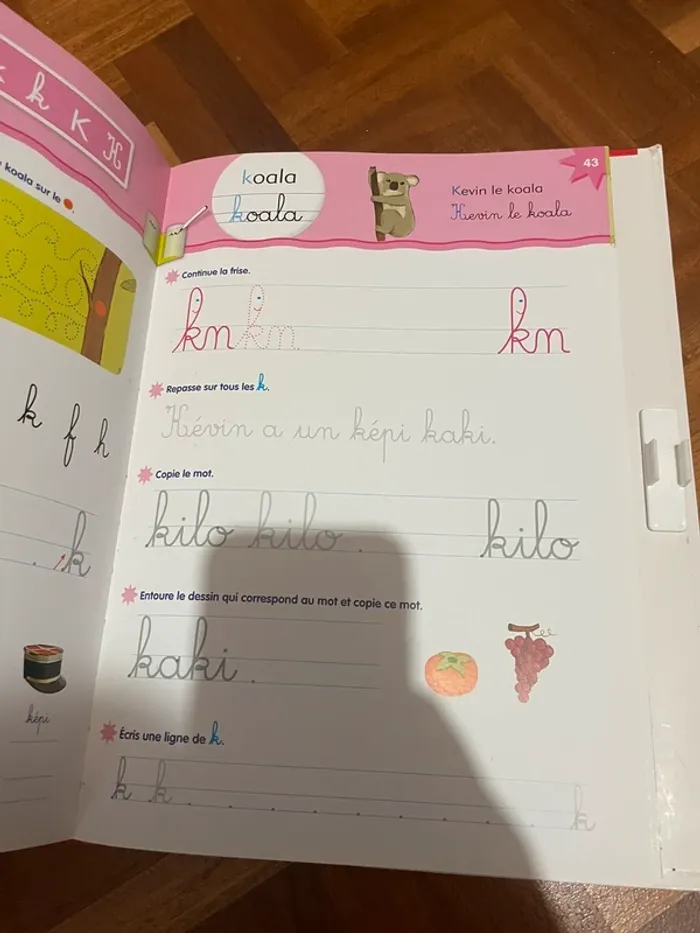 k K K
koala sur le
k f h
k
képi
43
koala
koala
Kevin le koala
Kevin le koala
Continue la frise.
kn kn kn
Repasse sur tous les k.
Kévin a un képi kaki.
Copie le mot.
kilo kilo . kilo
Entoure le dessin qui correspond au mot et copie ce mot.
kaki .
Écris une ligne de k.
k k . . . . . . . . k